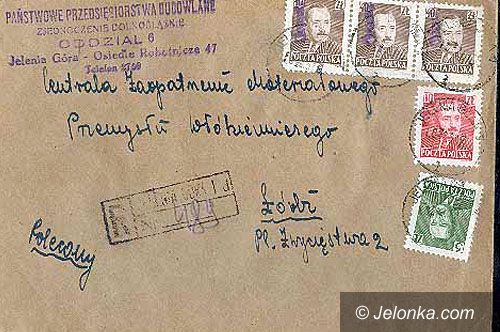 PAŃSTWOWE PRZEDSIĘBIORSTWA BUDOWLANE
ZJEDNOCZENIE DOLNOŚLĄSKIE
ODDZIAŁ 6
Jelenia Góra - Osiedle Robotnicze 47
Telefon
Centrala Zaopatrzenia Materiałowego
Przemysłu Włókienniczego
Łódź
Pl. Zwycięstwa 2
Polecony
POCZTA POLSKA
POCZTA POLSKA
POCZTA POLSKA
POCZTA POLSKA
POCZTA POLSKA
© Jelonka.com